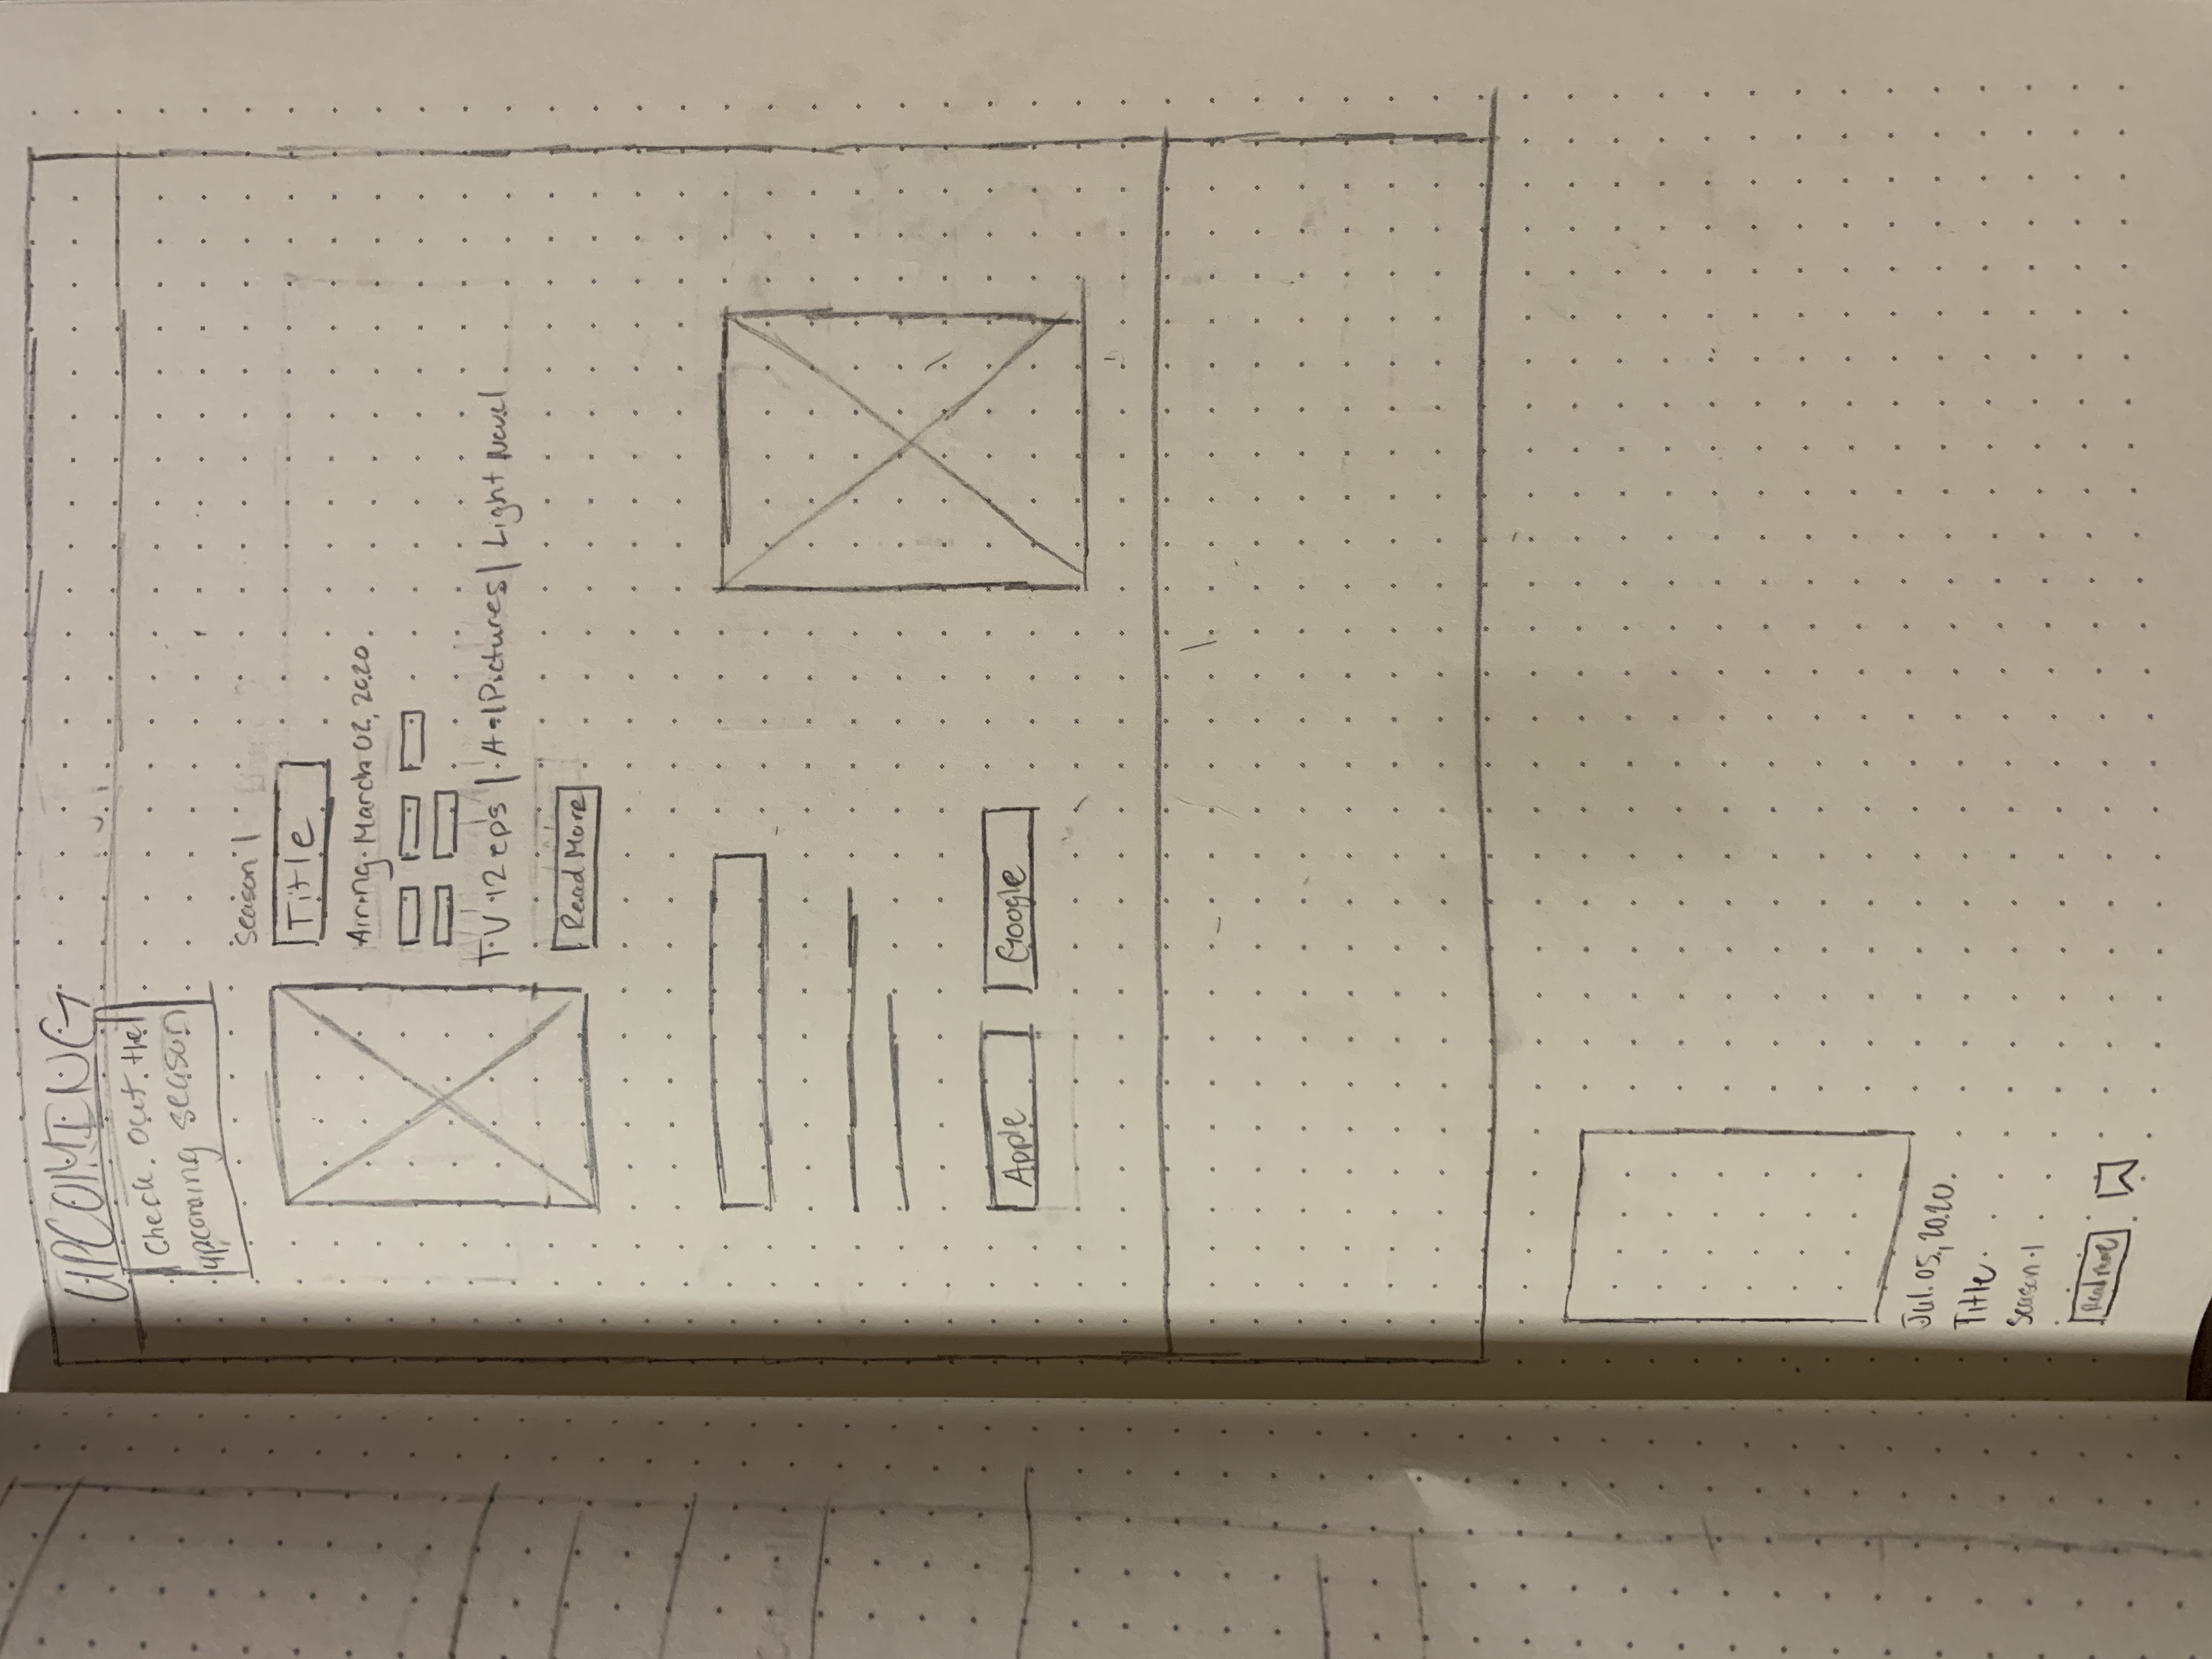 UPCOMING
Check out the
upcoming season
Season 1
Title
Airing March 02, 2020
TV 12 eps | A-1 Pictures | Light Novel
Read More
Apple
Google
Jul. 05, 2020
Title
Season 1
Read more